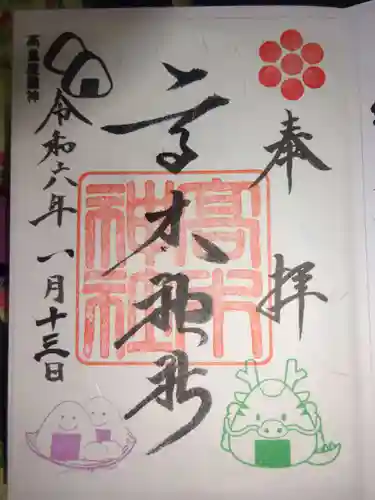 奉拝
高木神社
高木神社
高皇産霊神
令和六年八月十三日